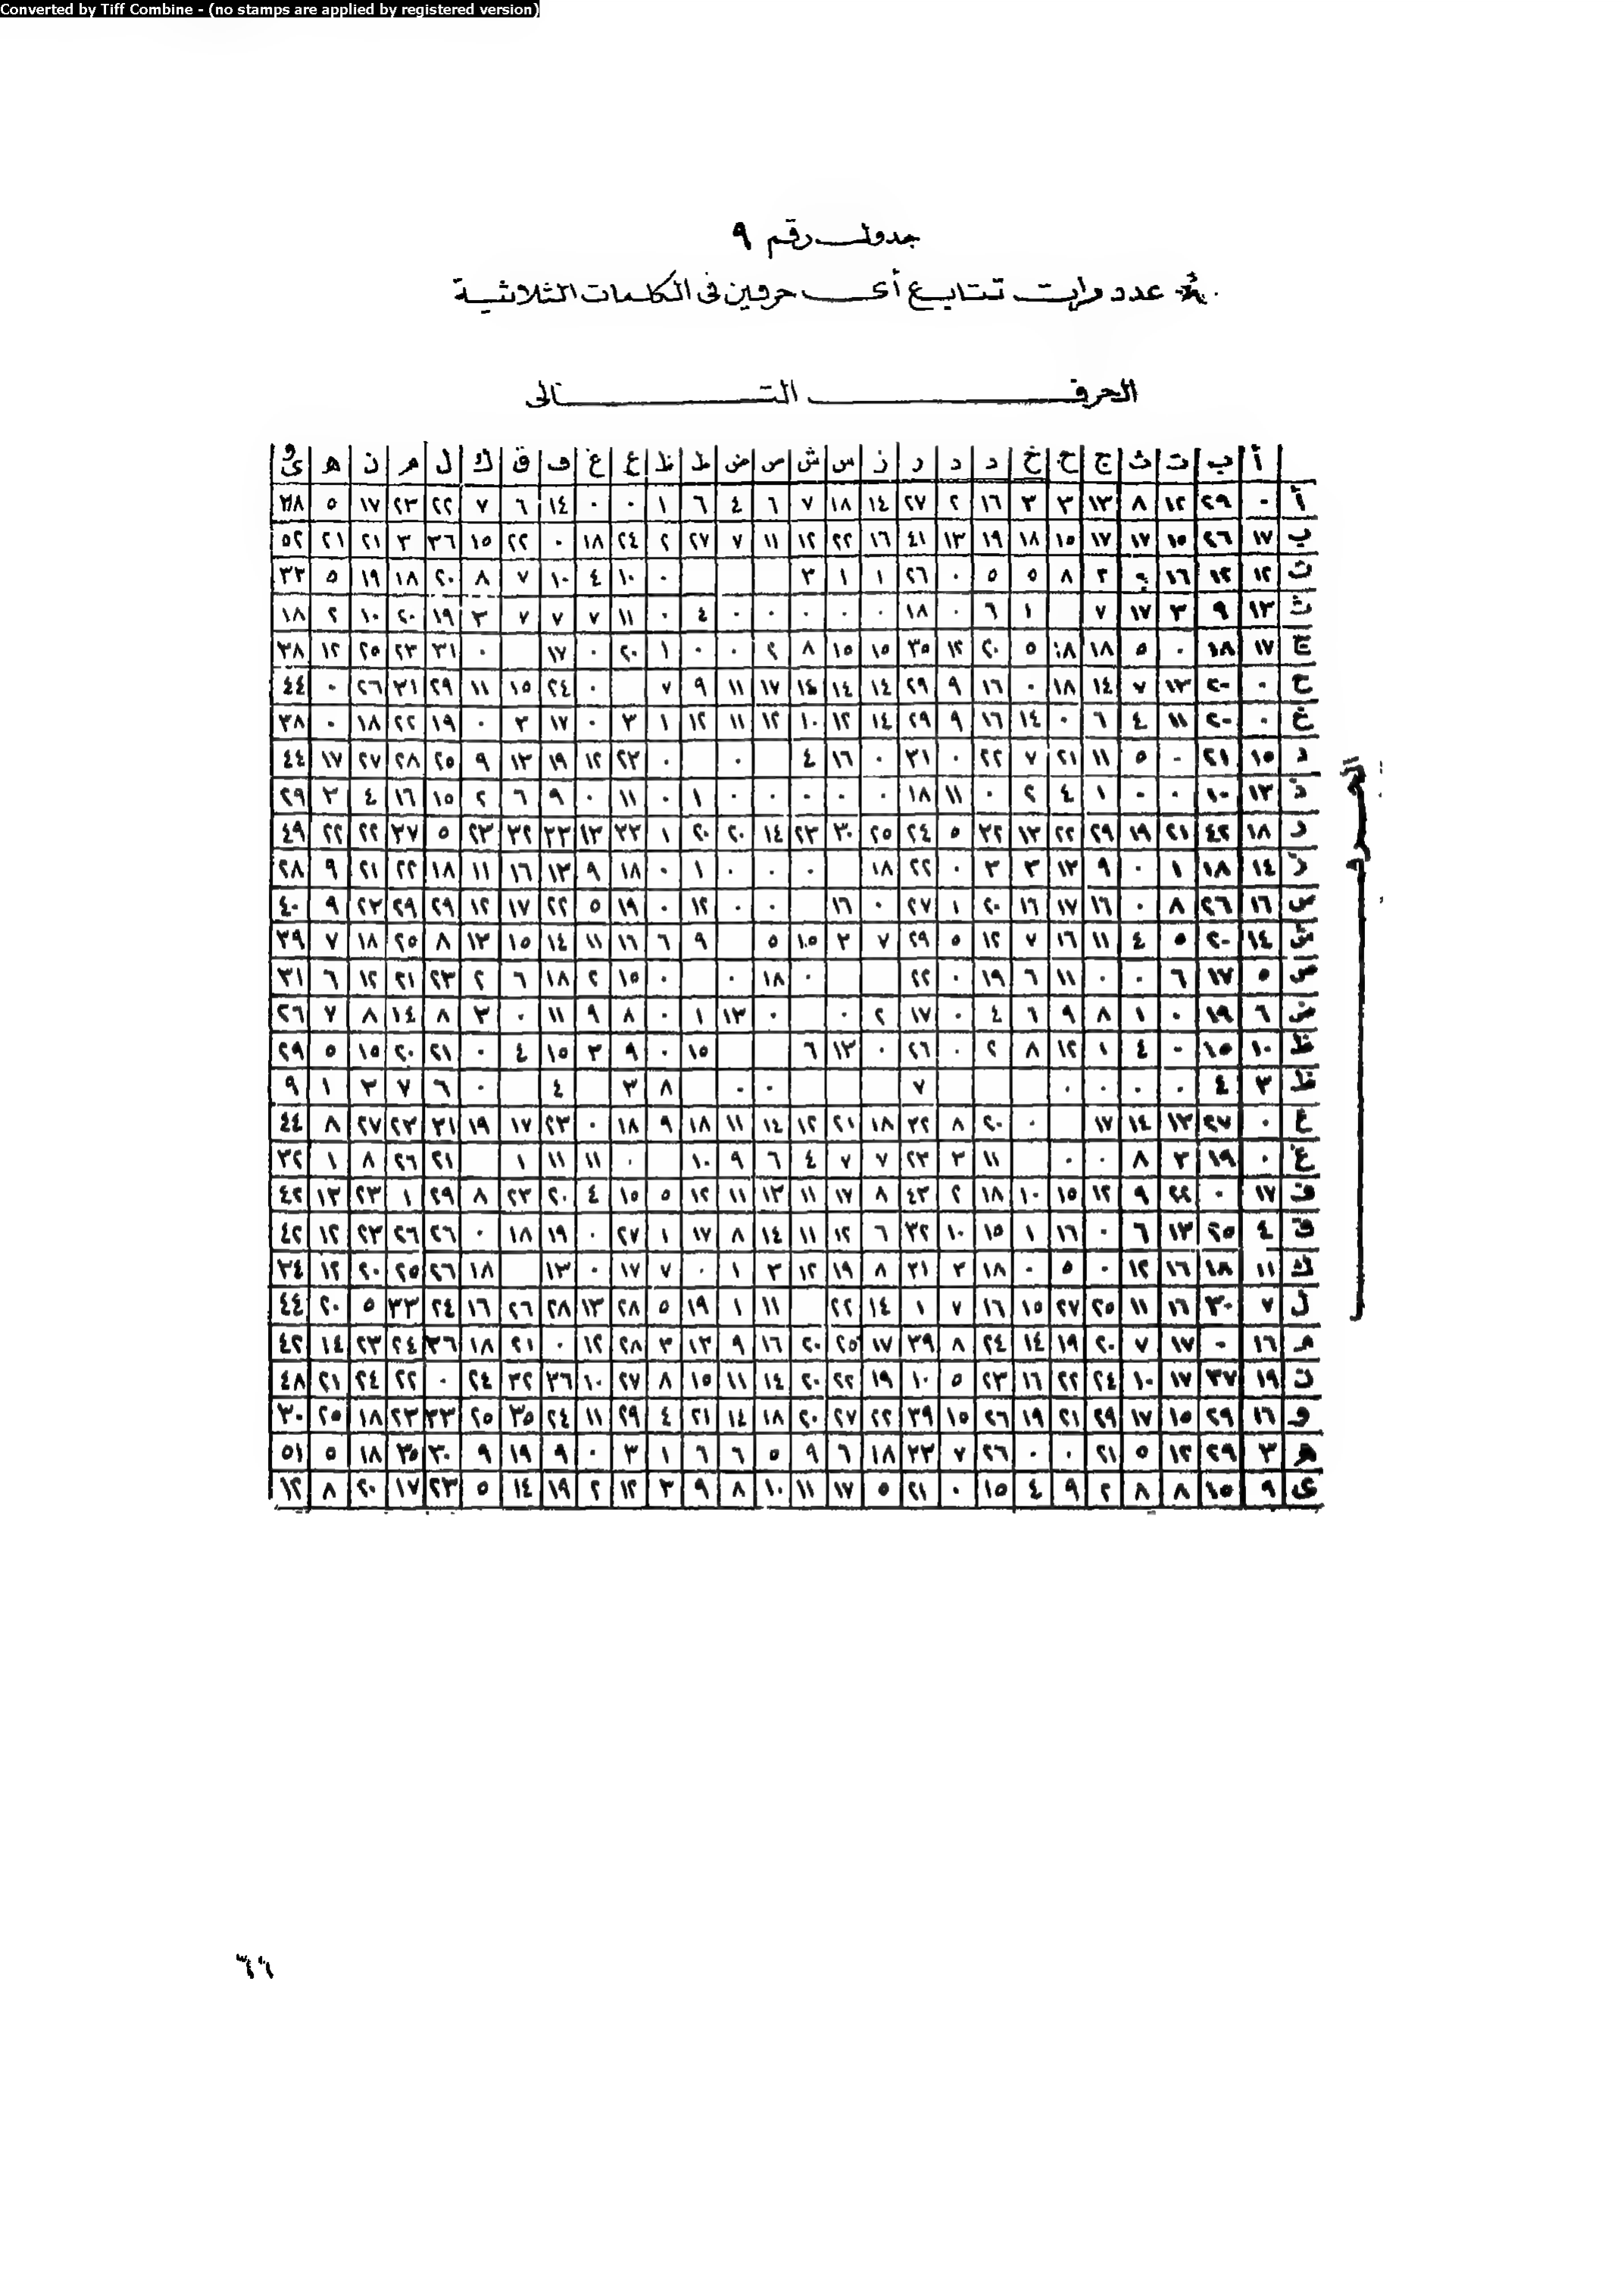 Converted by Tiff Combine - (no stamps are applied by registered version)
جدول رقم ٩
عدد مرات تتابع أى حرفين فى الكلمات الثلاثية
الحرف التالى
أ ب ت ث ج ح خ د د ر ز س ش ص ض ط ظ ع غ ف ق ك ل م ن ه و ى
أ ٠ ٢٩ ١٢ ٨ ١٣ ٣ ٣ ١٦ ٢ ٢٧ ١٤ ١٨ ٧ ٦ ٤ ٦ ١ ٠ ٠ ١٤ ٦ ٧ ٢٢ ٢٣ ١٧ ٥
ب ١٧ ٢٦ ١٥ ١٧ ١٧ ١٥ ١٨ ١٩ ١٣ ٤١ ١٦ ٢٢ ١٢ ١١ ٧ ٢٧ ٢ ٢٤ ١٨ ٠ ٢٢ ١٥ ٣٦ ٣ ٢١ ٢١ ٥٢
ت ١٢ ١٢ ١٦ ٢ ٨ ٥ ٥ ٠ ٢٦ ١ ١ ٣ ٠ ١٠ ٤ ١٠ ٧ ٨ ٢٠ ١٨ ١٩ ٥ ٣٢
ث ١٣ ٩ ٣ ١٧ ٧ ١ ٦ ٠ ١٨ ٠ ٠ ٠ ٠ ٠ ٤ ٠ ١١ ٧ ٧ ٧ ٣ ١٩ ٢٠ ١٠ ٢ ١٨
ج ١٧ ١٨ ٠ ٥ ١٨ ١٨ ٥ ٢٠ ١٢ ٣٥ ١٥ ١٥ ٨ ٢ ٠ ٠ ١ ٢٠ ٠ ١٧ ٠ ٣١ ٢٣ ٢٥ ١٢ ٣٨
ح ٠ ٢٠ ١٣ ٧ ١٤ ١٨ ٠ ١٦ ٩ ٢٩ ١٤ ١٤ ١٤ ١٧ ١١ ٩ ٧ ٠ ٢٤ ١٥ ١١ ٢٩ ٣١ ٢٦ ٠ ٤٤
خ ٠ ٢٠ ١١ ٤ ٦ ٠ ١٤ ١٦ ٩ ٢٩ ١٤ ١٢ ١٠ ١٢ ١١ ١٢ ١ ٣ ٠ ١٧ ٣ ٠ ١٩ ٢٢ ١٨ ٠ ٣٨
د ١٥ ٢١ ٠ ٥ ١١ ٢١ ٧ ٢٢ ٠ ٣١ ٠ ١٦ ٤ ٠ ٠ ٢٢ ١٢ ١٩ ١٣ ٩ ٢٥ ٢٨ ٢٧ ١٧ ٤٤
ذ ١٣ ١٠ ٠ ٠ ١ ٤ ٢ ٠ ١١ ١٨ ٠ ٠ ٠ ٠ ٠ ١ ٠ ١١ ٠ ٩ ٦ ٢ ١٥ ١٦ ٤ ٣ ٢٩
ر ١٨ ٤٢ ٢١ ١٩ ٢٩ ٢٢ ١٣ ٣٢ ٥ ٢٤ ٢٥ ٣٠ ٢٣ ١٤ ٢٠ ٢٠ ١ ٢٢ ١٣ ٣٣ ٣٢ ٢٣ ٥ ٢٧ ٢٢ ٢٢ ٤٩
ز ١٤ ١٨ ١ ٠ ٩ ١٣ ٣ ٣ ٠ ٢٢ ١٨ ٠ ٠ ٠ ١ ٠ ١٨ ٩ ١٣ ١٦ ١١ ١٨ ٢٢ ٢١ ٩ ٢٨
س ١٦ ٢٦ ٨ ٠ ١٦ ١٧ ١٦ ٢٠ ١ ٢٧ ٠ ١٦ ٠ ٠ ١٢ ٠ ١٩ ٥ ٢٢ ١٧ ١٢ ٢٩ ٢٩ ٢٣ ٩ ٤٠
ش ١٤ ٢٠ ٥ ٤ ١١ ١٦ ٧ ١٢ ٥ ٢٩ ٧ ٣ ١٥ ٥ ٩ ٦ ١٦ ١١ ١٤ ١٥ ١٣ ٨ ٢٥ ١٨ ٧ ٣٩
ص ٥ ١٧ ٦ ٠ ٠ ١١ ٦ ١٩ ٠ ٢٢ ٠ ١٨ ٠ ٠ ١٥ ٢ ١٨ ٦ ٢ ٢٣ ٢١ ١٢ ٦ ٣١
ض ٦ ١٩ ٠ ١ ٨ ٩ ٦ ٤ ٠ ١٧ ٢ ٠ ٠ ١٣ ١ ٠ ٨ ٩ ١١ ٠ ٣ ٨ ١٤ ٨ ٧ ٢٦
ط ١٠ ١٥ ٠ ٤ ١ ١٢ ٨ ٢ ٠ ٢٦ ٠ ١٣ ٦ ١٥ ٠ ٩ ٣ ١٥ ٤ ٠ ٢١ ٢٠ ١٥ ٥ ٢٩
ظ ٣ ٤ ٠ ٠ ٠ ٠ ٧ ٠ ٠ ٨ ٣ ٤ ٠ ٦ ٧ ٣ ١ ٩
ع ٠ ٢٧ ١٣ ١٤ ١٧ ٠ ٢٠ ٨ ٣٢ ١٨ ٢١ ١٢ ١٤ ١١ ١٨ ٩ ١٨ ٠ ٢٣ ١٧ ١٩ ٣١ ٢٣ ٢٧ ٨ ٤٤
غ ٠ ١٩ ٣ ٨ ٠ ٠ ١١ ٣ ٢٣ ٧ ٧ ٤ ٦ ٩ ١٠ ٠ ١١ ١١ ١ ٢١ ٢٦ ٨ ١ ٣٢
ف ١٧ ٠ ٢٢ ٩ ١٢ ١٥ ١٠ ١٨ ٢ ٤٣ ٨ ١٧ ١١ ١٣ ١١ ١٢ ٥ ١٥ ٤ ٢٠ ٢٣ ٨ ٢٩ ١ ٢٣ ١٣ ٤٢
ق ٤ ٢٥ ١٣ ٦ ٠ ١٦ ١ ١٥ ١٠ ٣٢ ٦ ١٢ ١١ ١٤ ٨ ١٧ ١ ٢٧ ٠ ١٩ ١٨ ٠ ٢٦ ٢٦ ٢٣ ١٢ ٤٢
ك ١١ ١٨ ١٦ ١٢ ٠ ٥ ٠ ١٨ ٣ ٣١ ٨ ١٩ ١٢ ٣ ١ ٠ ٧ ١٧ ٠ ١٣ ١٨ ٢٦ ٢٥ ٢٠ ١٢ ٣٤
ل ٧ ٣٠ ١٦ ١١ ٢٥ ٢٧ ١٥ ١٦ ٧ ١ ١٤ ٢٢ ١١ ١ ١٩ ٥ ٢٨ ١٣ ٢٨ ٢٦ ١٦ ٢٤ ٣٣ ٥ ٢٠ ٤٤
م ١٦ ٠ ١٧ ٧ ٢٠ ١٩ ١٤ ٢٤ ٨ ٣٩ ١٧ ٢٥ ٢٠ ١٦ ٩ ١٣ ٣ ٢٨ ١٢ ٠ ٢١ ١٨ ٣٦ ٢٤ ٢٣ ١٤ ٤٢
ن ١٩ ٣٧ ١٧ ١٠ ٢٤ ٢٢ ١٦ ٢٣ ٥ ١٠ ١٩ ٢٢ ٢٠ ١٤ ١١ ١٥ ٨ ٢٧ ١٠ ٣٦ ٣٢ ٢٤ ٠ ٢٢ ٢٤ ٢١ ٤٨
و ١٦ ٢٩ ١٥ ١٧ ٢٩ ٢١ ١٩ ٢٦ ١٥ ٣٩ ٢٢ ٢٧ ٢٠ ١٨ ١٤ ٢١ ٤ ٢٩ ١١ ٢٤ ٣٥ ٢٥ ٣٣ ٢٣ ١٨ ٢٥ ٣٠
ه ٣ ٢٩ ١٢ ٥ ٢١ ٠ ٠ ٢٦ ٧ ٣٣ ١٨ ٦ ٩ ٥ ٦ ٦ ١ ٣ ٠ ٩ ١٩ ٩ ٣٠ ٣٥ ١٨ ٥ ٥١
ى ٩ ١٥ ٨ ٨ ٢ ٩ ٤ ١٥ ٠ ٢١ ٥ ١٧ ١١ ١٠ ٨ ٩ ٣ ١٢ ٢ ١٩ ١٤ ٥ ٢٣ ١٧ ٢٠ ٨ ١٢
الحرف
٦٦